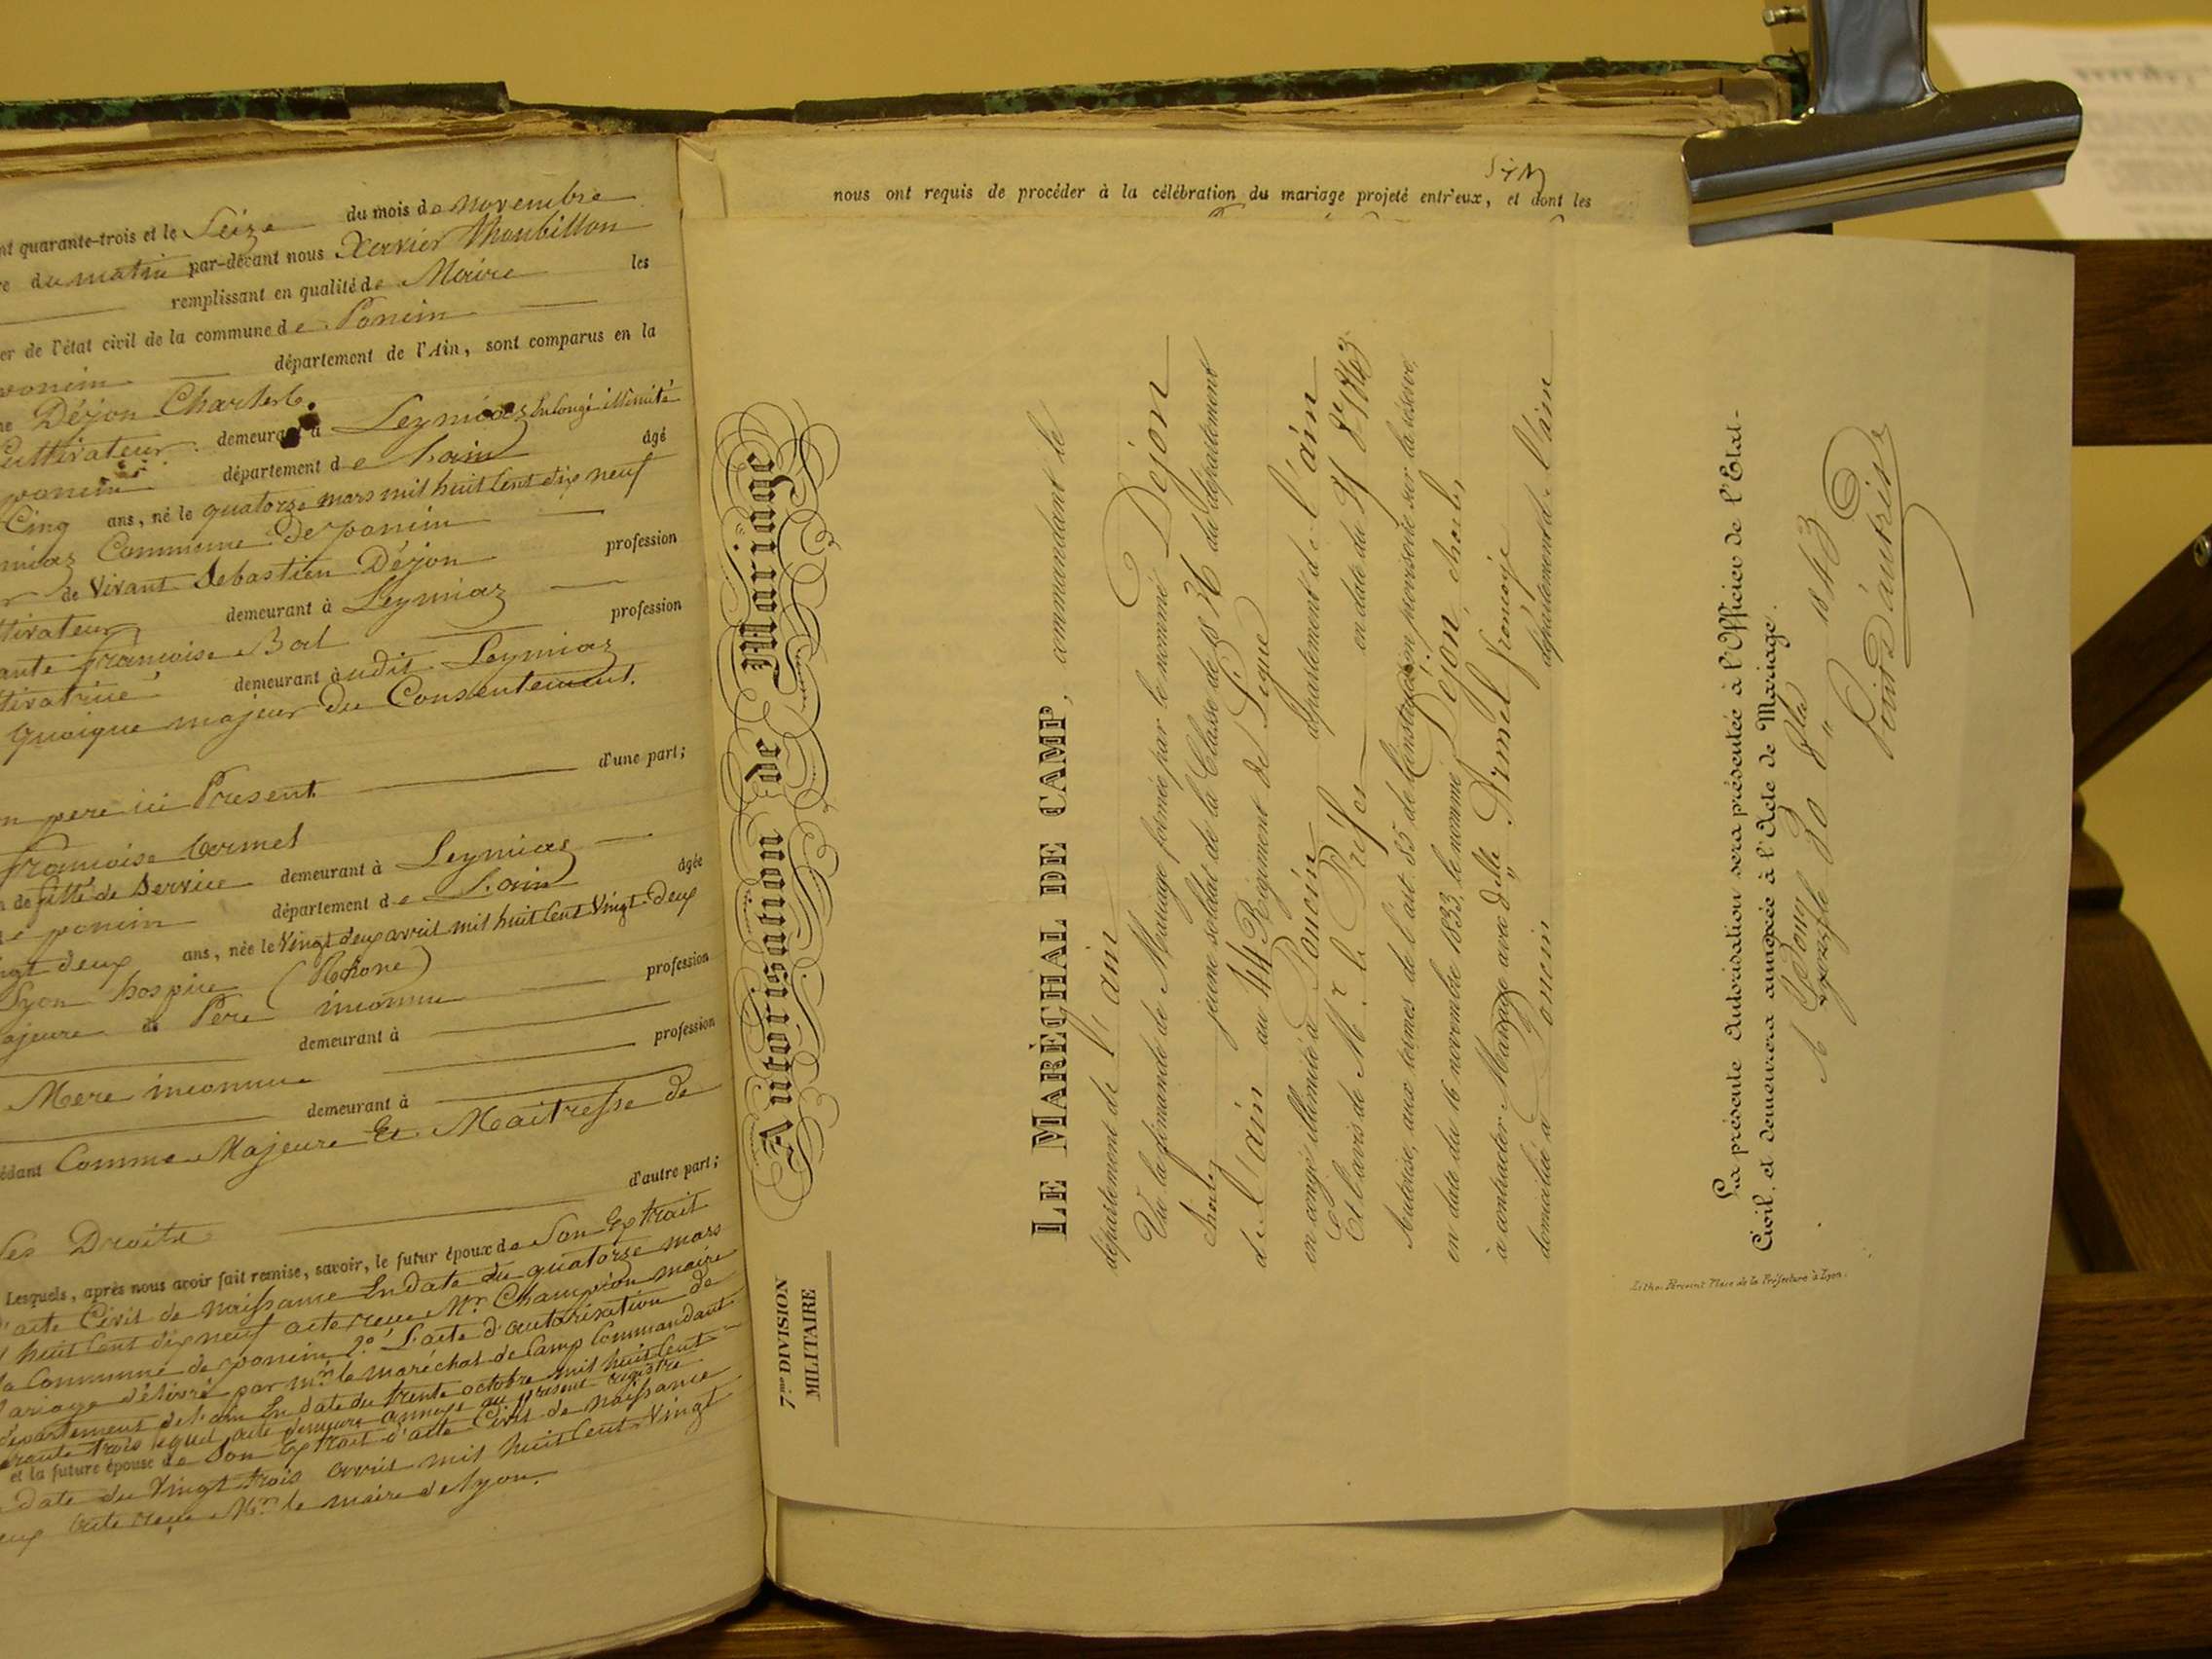 nt quarante-trois et le Seize du mois de novembre
re du matin par-devant nous Xavier Monbillon
remplissant en qualité de Maire les
er de l'état civil de la commune de Poncin
poncin département de l'Ain, sont comparus en la
Déjon Charles
Cultivateur demeurant à Leymiaz En Congé illimité
poncin département de L'ain âgé
Cinq ans, né le quatorze mars mil huit Cent dix neuf
miaz Commune de poncin
r de Vivant Sebastien Déjon profession
tivateur demeurant à Leymiaz
ante françoise Bal profession
tivatrice demeurant audit Leymiaz
quoique majeur du Consentement
n pere ici Present d'une part;
françoise Armel
n de fille de Service demeurant à Leymiaz
de poncin département de L'ain âgée
ngt deux ans, née le Vingt deux avril mil huit Cent Vingt Deux
Lyon hospice (Rhone)
ajeure de Père inconnu profession
demeurant à
Mere inconnue profession
demeurant à
édant Comme Majeure Et Maitresse de
ses Droits d'autre part;
Lesquels, après nous avoir fait remise, savoir, le futur époux de Son Extrait
d'acte Civil de Naissance En date du quatorze mars
l huit Cent dix neuf acte reçu Mr. Champion maire
la Commune de poncin 2.º L'acte d'autorisation de
ariage délivré par mr. le maréchal de Camp Commandant
département de l'ain En date du trente octobre mil huit Cent
arante trois lequel acte demeure annexé au present registre
et la future épouse de Son Extrait d'acte Civil de naissance
date du Vingt trois avril mil huit Cent Vingt
eux acte reçu Mr. le maire de lyon.
nous ont requis de procéder à la célébration du mariage projeté entr'eux, et dont les
7.me DIVISION
MILITAIRE
Autorisation de Mariage
LE MARÉCHAL DE CAMP, commandant le
département de l'ain
Vu la demande de Mariage formée par le nommé Dejon
Charles jeune soldat de la Classe de 1836 du département
de l'ain au 44 Régiment de Ligne
en congé illimité à Poncin département de l'ain
Et l'avis de Mr. le Préfet en date du 21 8bre 1843
Autorise, aux termes de l'art. 85 de l'instruction provisoire sur la réserve,
en date du 16 novembre 1833, le nommé Dejon, charles
à contracter Mariage avec delle. Armel françoise
domiciliée à Poncin département de l'ain
La présente Autorisation sera présentée à l'Officier de l'Etat-
Civil, et demeurera annexée à l'Acte de Mariage.
A Bourg 30 8bre 1843
Litho. Perceint Place de la Préfecture à Lyon.